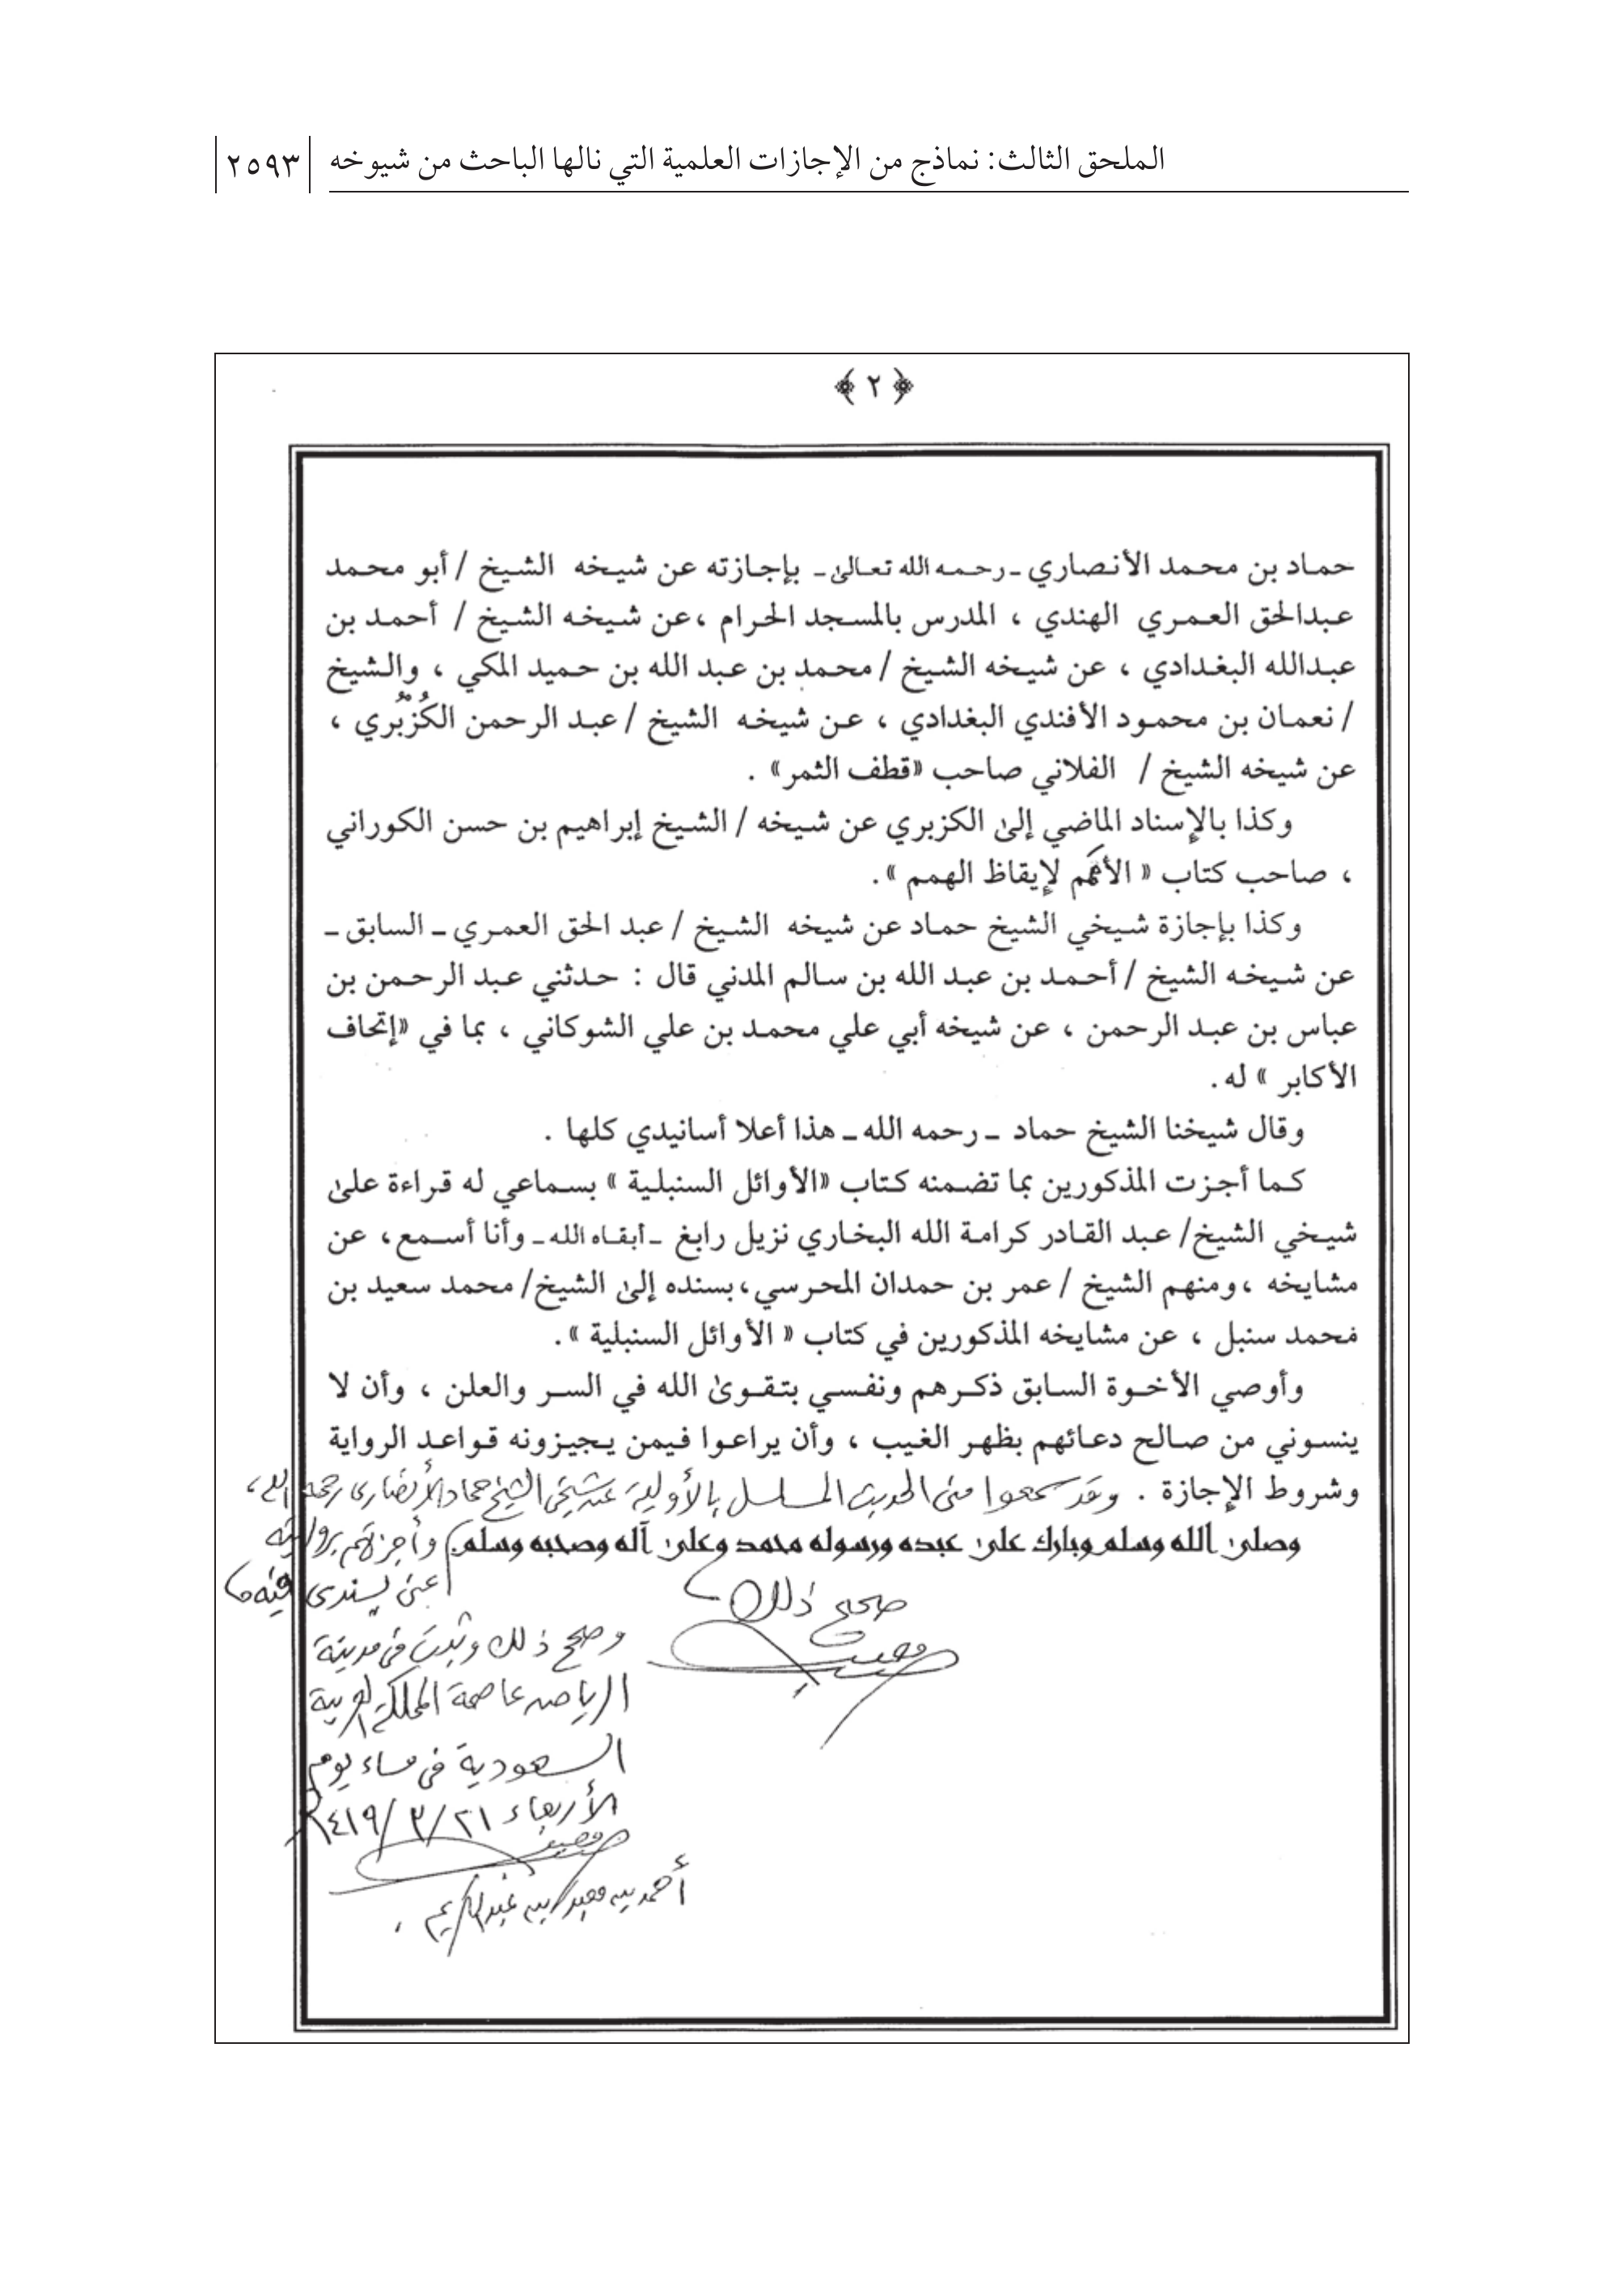 الملحق الثالث: نماذج من الإجازات العلمية التي نالها الباحث من شيوخه
٢٥٩٣
﴿ ٢ ﴾
حماد بن محمد الأنصاري ـ رحمه الله تعالى ـ بإجازته عن شيخه الشيخ / أبو محمد
عبدالحق العمري الهندي ، المدرس بالمسجد الحرام ، عن شيخه الشيخ / أحمد بن
عبدالله البغدادي ، عن شيخه الشيخ / محمد بن عبد الله بن حميد المكي ، والشيخ
/ نعمان بن محمود الأفندي البغدادي ، عن شيخه الشيخ / عبد الرحمن الكُزْبُري ،
عن شيخه الشيخ / الفلاني صاحب «قطف الثمر» .
وكذا بالإسناد الماضي إلى الكزبري عن شيخه / الشيخ إبراهيم بن حسن الكوراني
، صاحب كتاب « الأمم لإيقاظ الهمم » .
وكذا بإجازة شيخي الشيخ حماد عن شيخه الشيخ / عبد الحق العمري ـ السابق ـ
عن شيخه الشيخ / أحمد بن عبد الله بن سالم المدني قال : حدثني عبد الرحمن بن
عباس بن عبد الرحمن ، عن شيخه أبي علي محمد بن علي الشوكاني ، بما في «إتحاف
الأكابر » له .
وقال شيخنا الشيخ حماد ـ رحمه الله ـ هذا أعلا أسانيدي كلها .
كما أجزت المذكورين بما تضمنه كتاب «الأوائل السنبلية » بسماعي له قراءة على
شيخي الشيخ/ عبد القادر كرامة الله البخاري نزيل رابغ ـ أبقاه الله ـ وأنا أسمع، عن
مشايخه ، ومنهم الشيخ / عمر بن حمدان المحرسي ، بسنده إلى الشيخ/ محمد سعيد بن
محمد سنبل ، عن مشايخه المذكورين في كتاب « الأوائل السنبلية » .
وأوصي الأخوة السابق ذكرهم ونفسي بتقوى الله في السر والعلن ، وأن لا
ينسوني من صالح دعائهم بظهر الغيب ، وأن يراعوا فيمن يجيزونه قواعد الرواية
وشروط الإجازة . وقد سمعوا مني الحديث المسلسل بالأولية عن شيخي الشيخ حماد الأنصاري رحمه الله ،
وصلى الله وسلم وبارك على عبده ورسوله محمد وعلى آله وصحبه وسلم . وأجزتهم بروايته
عني بسندي فيه
صحيح ذلك
وصح ذلك وثبت في مدينة
الرياض عاصمة المملكة العربية
السعودية في مساء يوم
الأربعاء ٢١/٣/١٤١٩
أحمد بن معبد بن عبد الكريم .